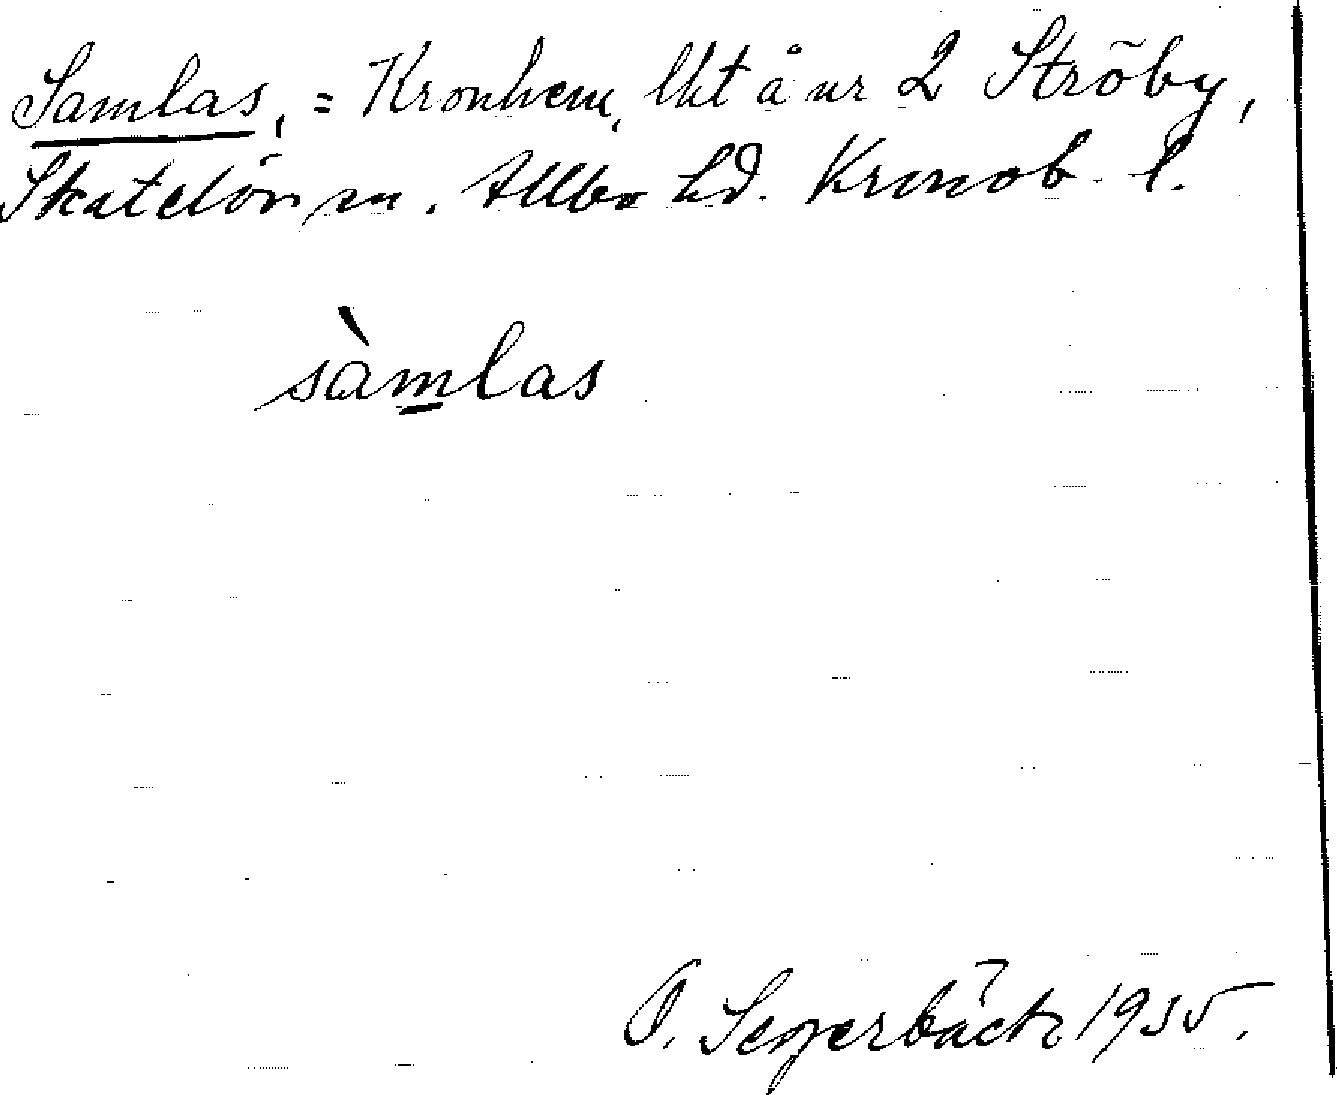 Samlas, = Kronhem, lht å nr 2 Ströby,
Skatelövs sn. Allbo hd. Kronob. l.
sàmlas
O. Segerbäck 1935.